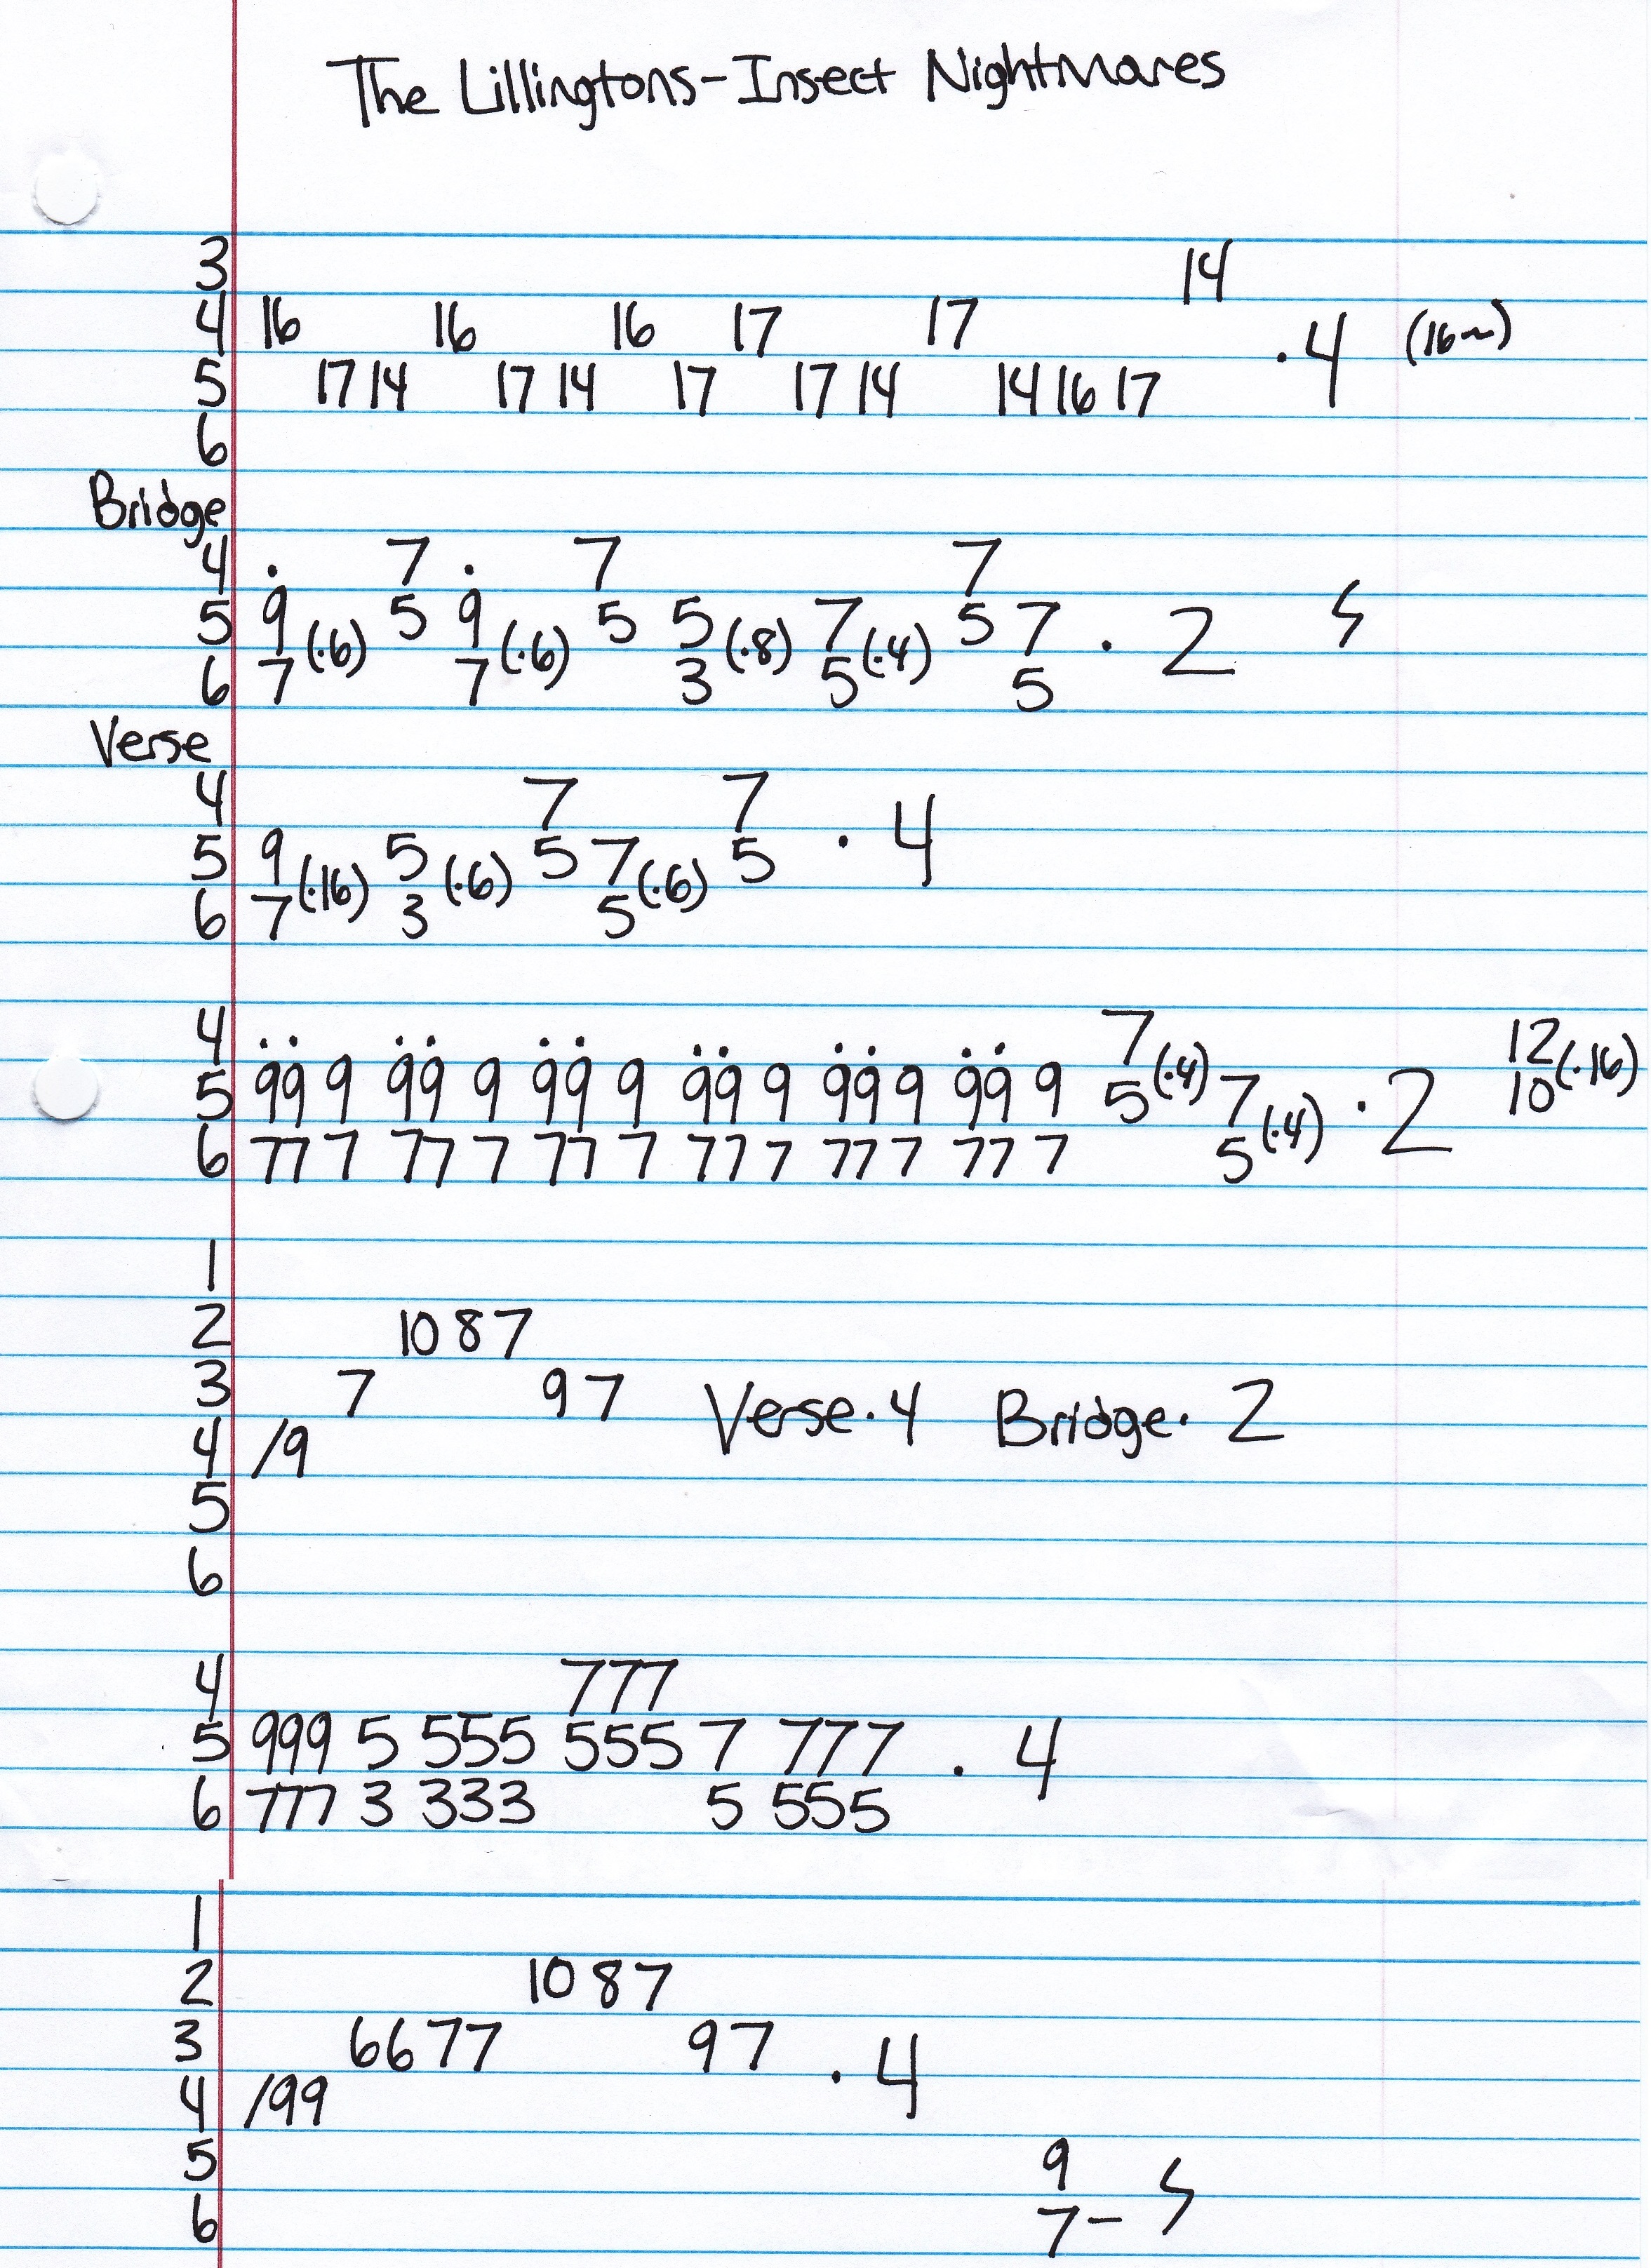 The Lillingtons-Insect Nightmares
3 14
4 16 16 16 17 17 · 4 (16~)
5 17 14 17 14 17 17 14 14 16 17
6
Bridge
4 · 7 · 7 7
5 9 (·6) 5 9 (·6) 5 5 (·8) 7 (·4) 5 7 · 2
6 7 7 3 5 5
Verse
4 7 7 · 4
5 9 (·16) 5 (·6) 5 7 (·6) 5
6 7 3 5
4 ·· ·· ·· ·· ·· ·· 7 (·4) 12 (·16)
5 99 9 99 9 99 9 99 9 99 9 99 9 5 7 (·4) · 2 10
6 77 7 77 7 77 7 77 7 77 7 77 7 5
1
2 10 8 7
3 7 9 7 Verse · 4 Bridge · 2
4 /9
5
6
4 777
5 999 5 555 555 7 777 · 4
6 777 3 333 5 555
1
2 10 8 7
3 6677 97 · 4
4 /99
5 9
6 7-